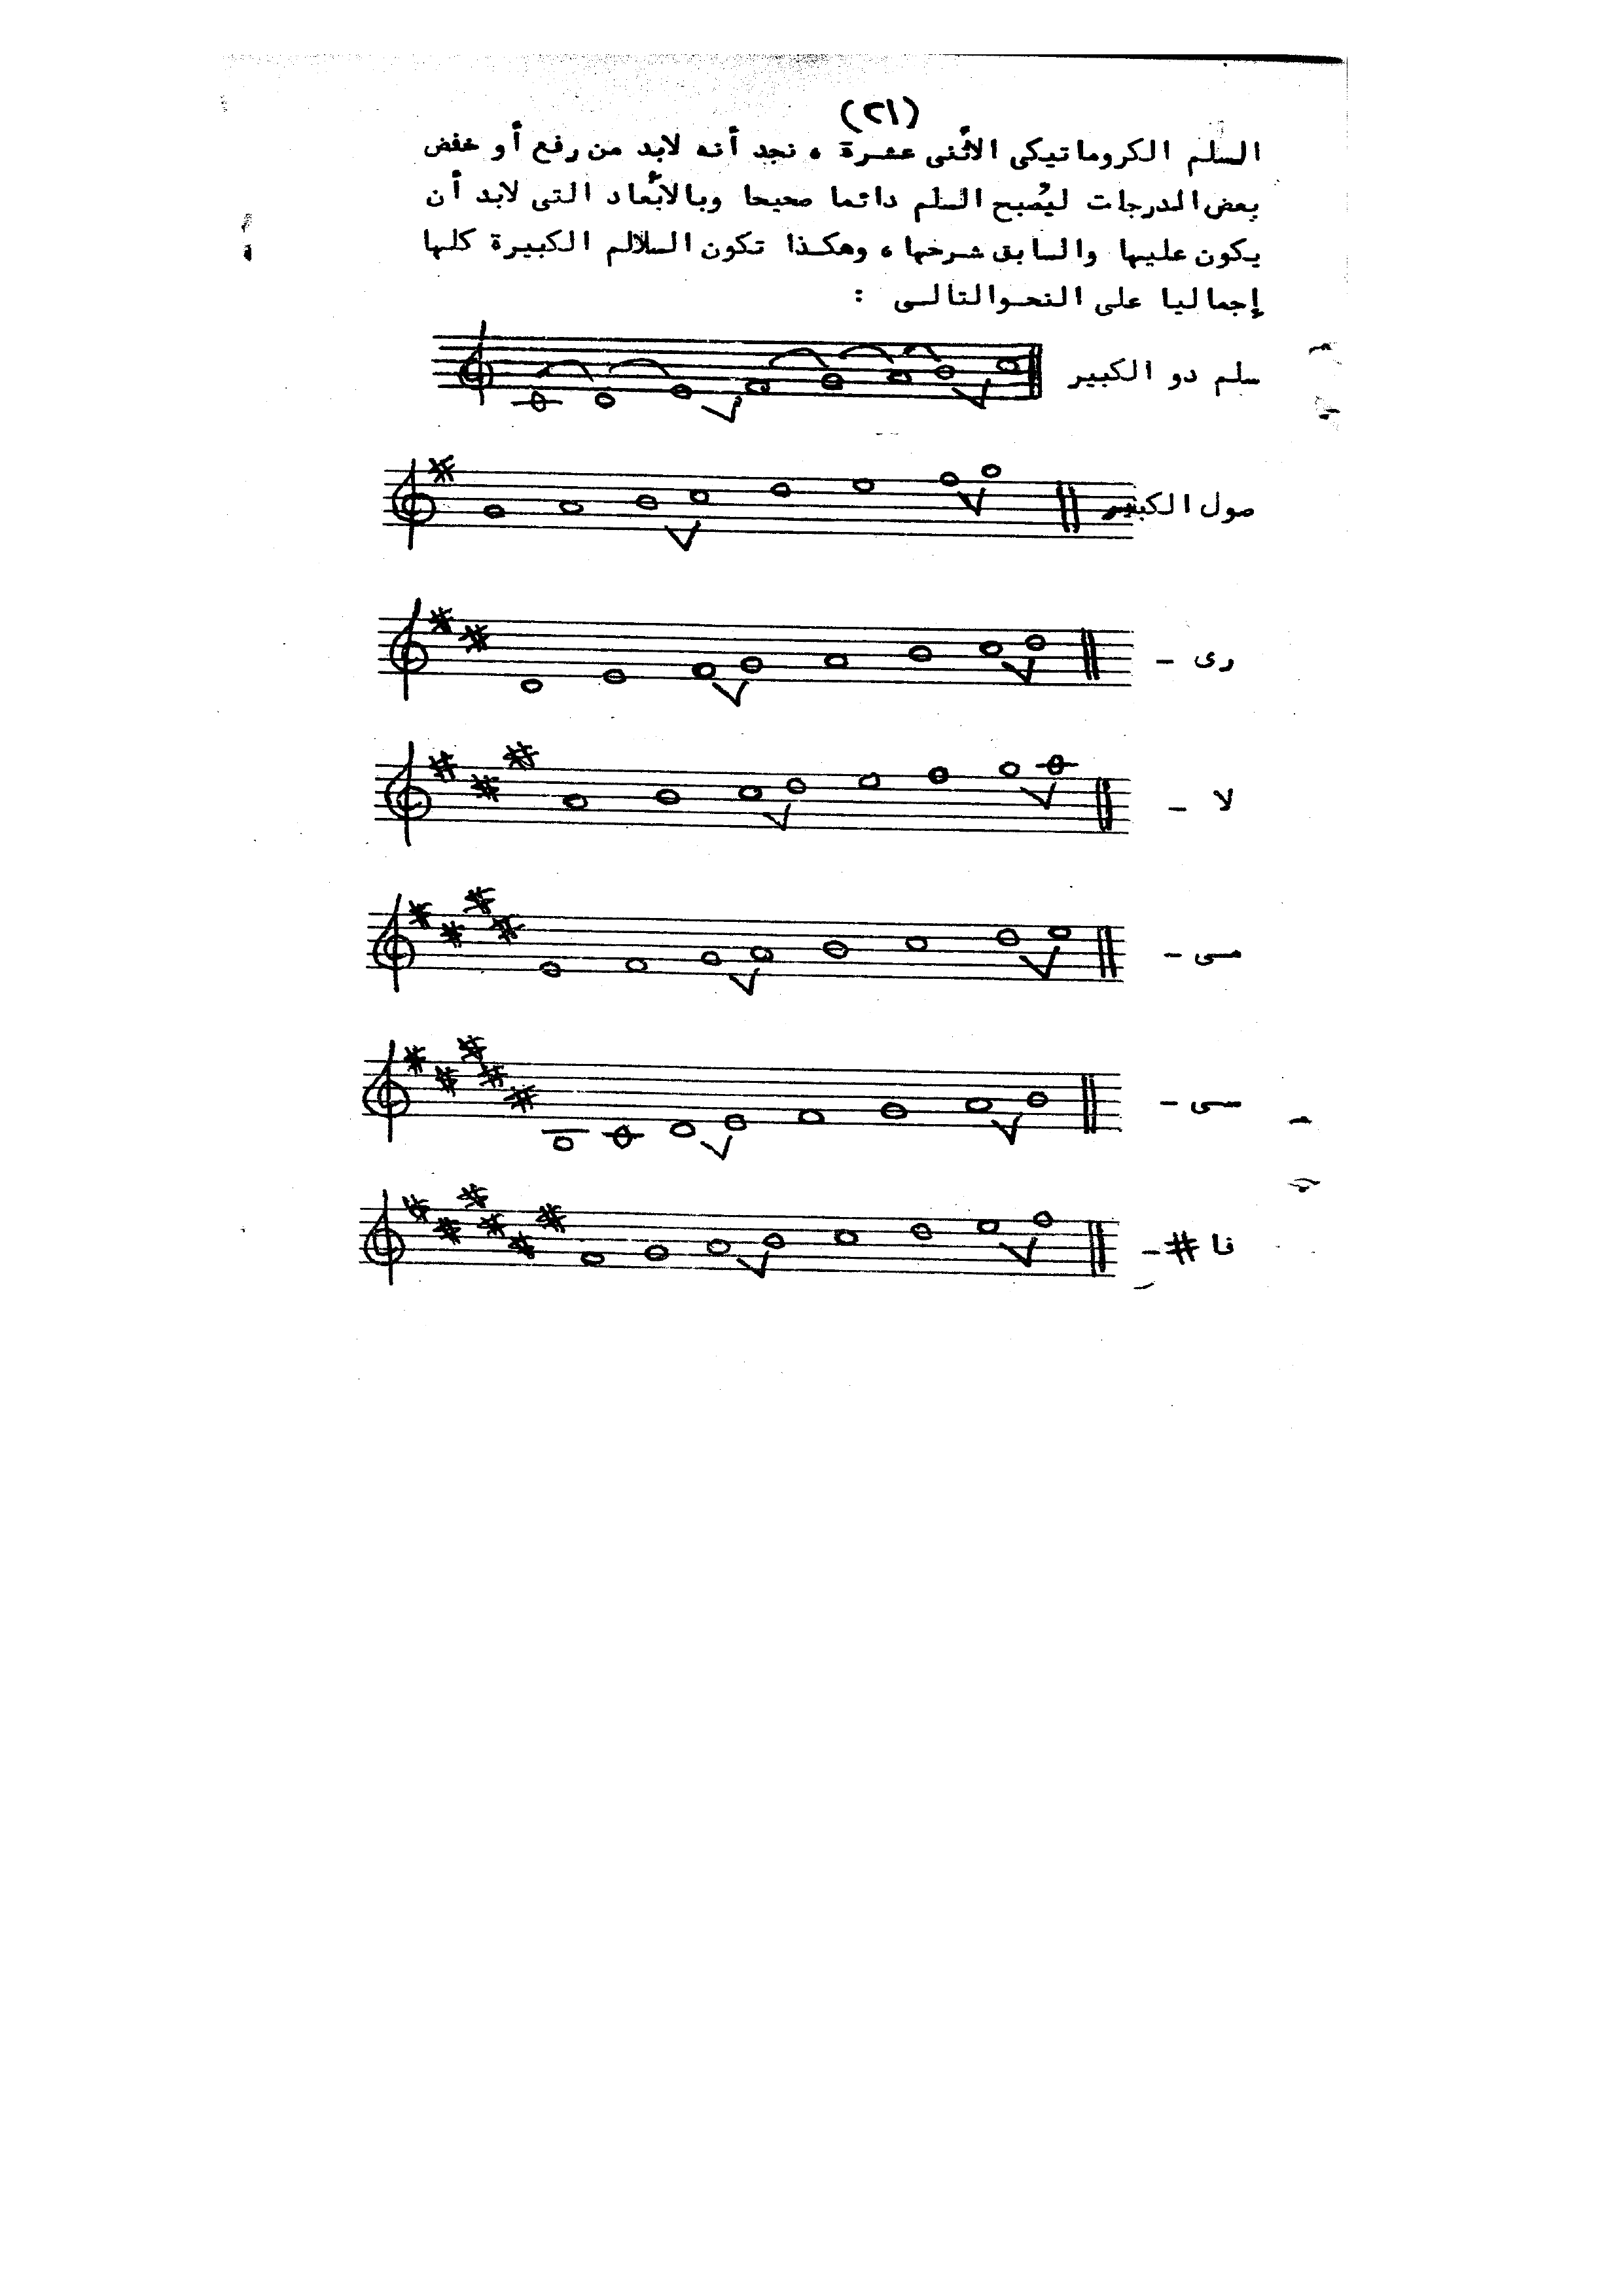 (٢١)
السلم الكروماتيكى الاثنى عشرة ، نجد أنه لابد من رفع أو خفض
بعض الدرجات ليُصبح السلم دائما صحيحا وبالابُعاد التى لابد أن
يكون عليها والسابق شرحها ، وهكذا تكون السلالم الكبيرة كلها
إجماليا على النحو التالى :
سلم دو الكبير
صول الكبير
رى -
لا -
مى -
سى -
فا # -